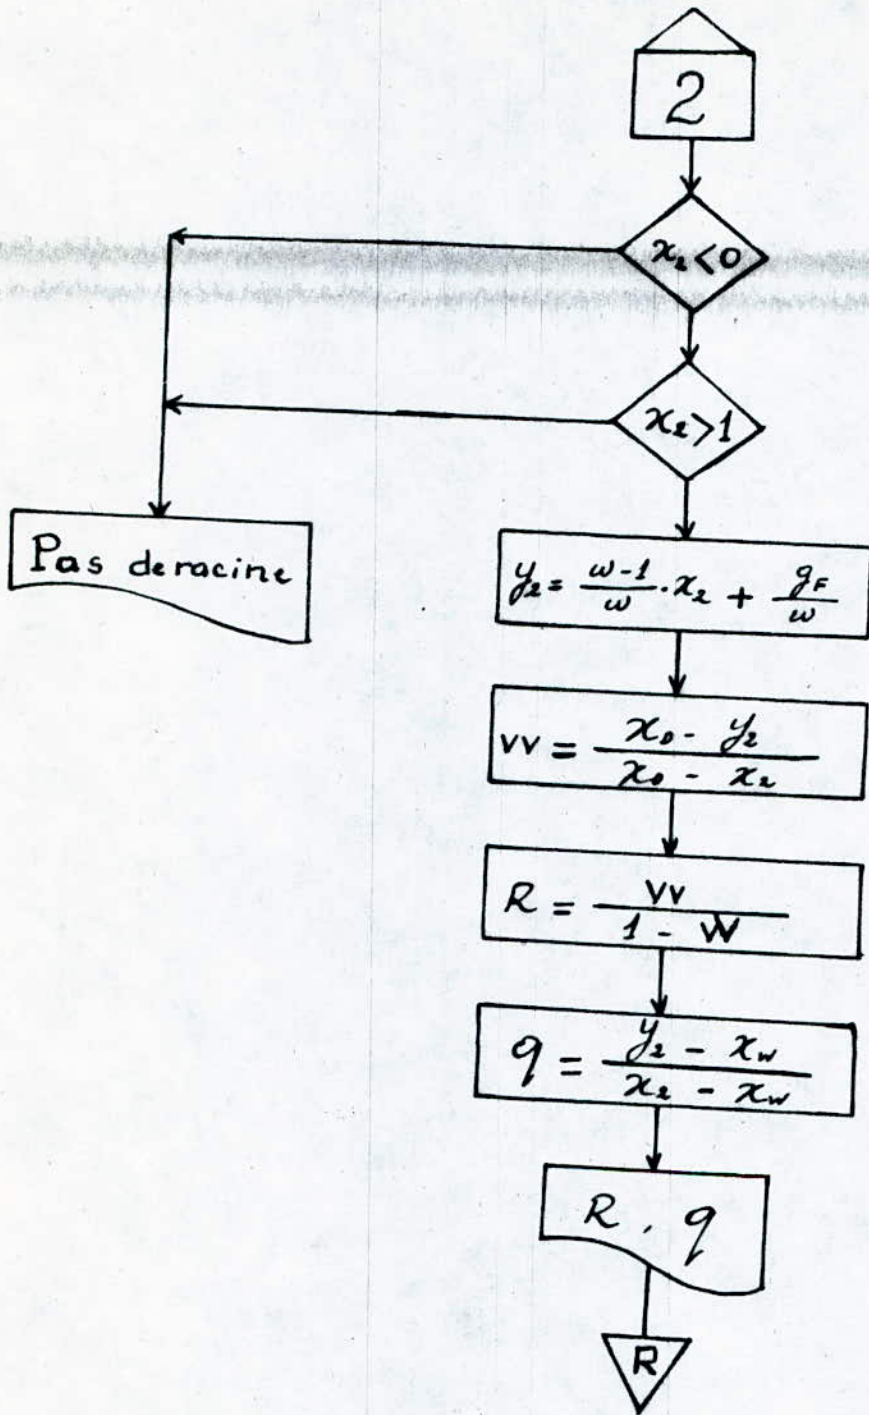 2
x₂ < 0
x₂ > 1
Pas de racine
y₂ = \frac{ω-1}{ω} . x₂ + \frac{g_F}{ω}
VV = \frac{x_D - y_2}{x_D - x_2}
R = \frac{VV}{1 - VV}
q = \frac{y_2 - x_w}{x_2 - x_w}
R , q
R